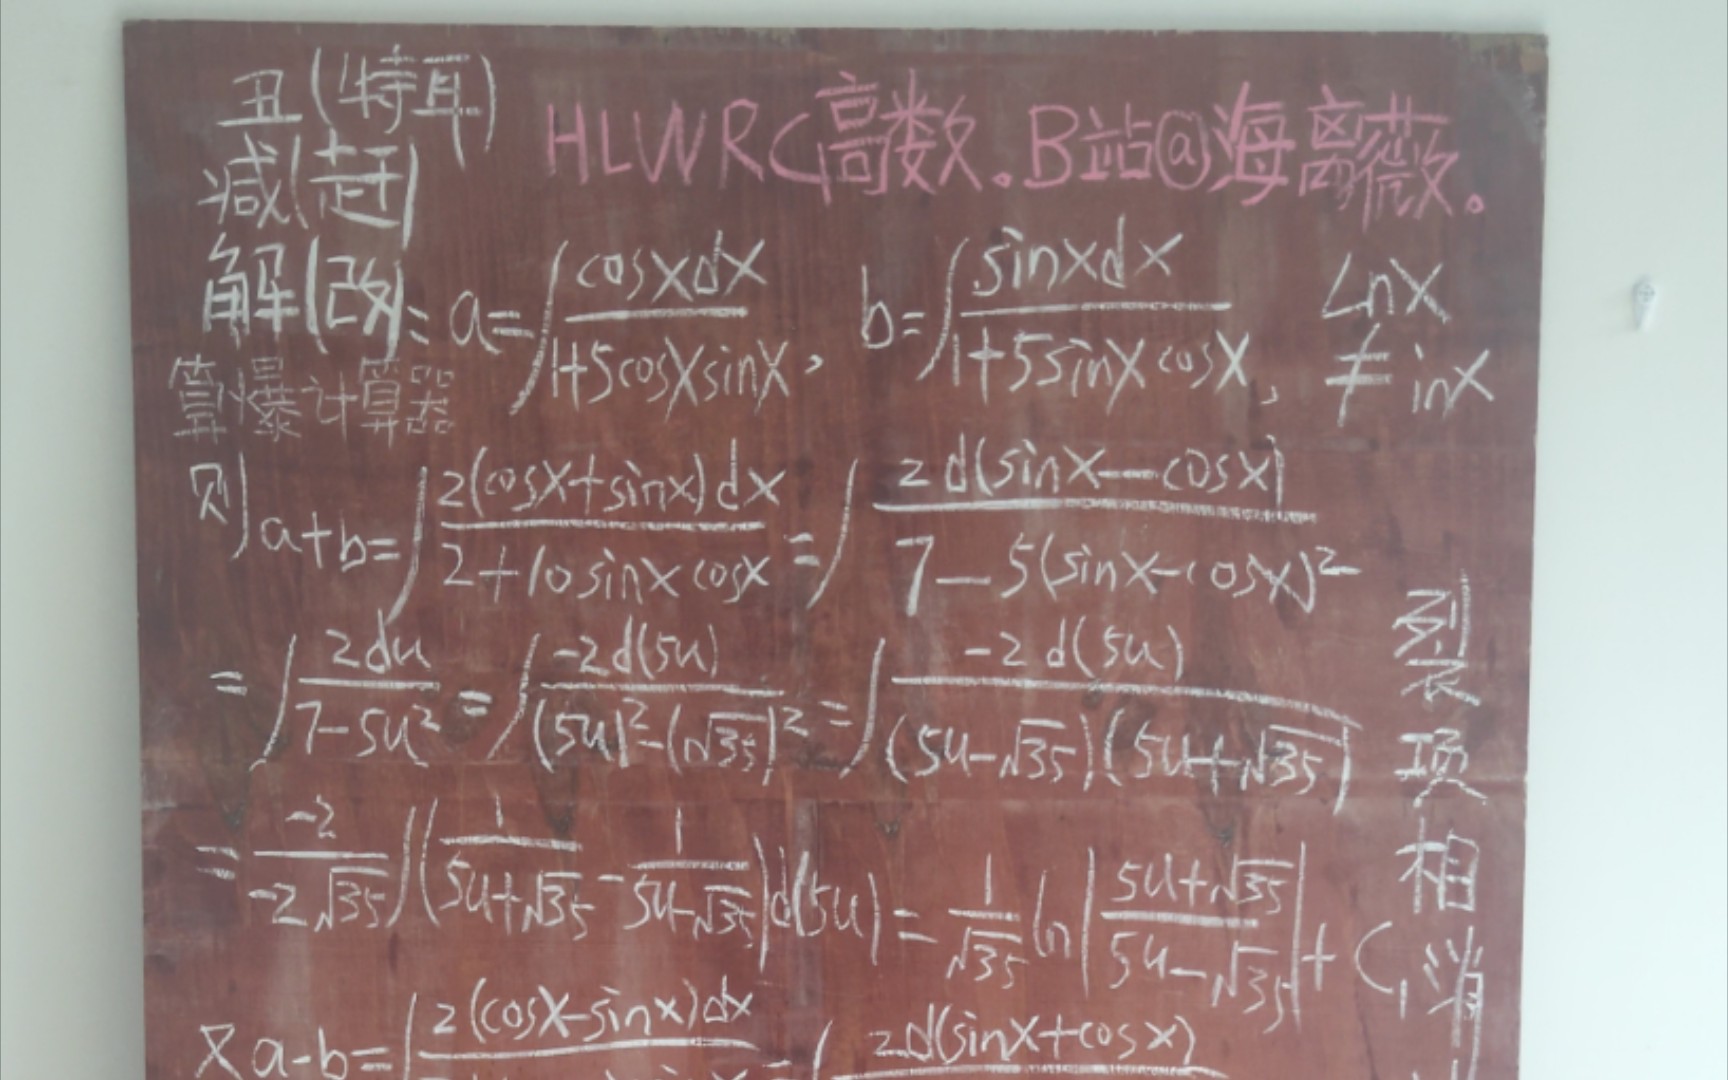 丑(特耳)
减(赶)
HLWRC高数.B站@海离薇。
解(改): a=∫cosxdx/(1+5cosxsinx), b=∫sinxdx/(1+5sinxcosx), Lnx≠inx
算爆计算器
则 a+b=∫2(cosx+sinx)dx/(2+10sinxcosx)=∫2d(sinx-cosx)/(7-5(sinx-cosx)²)
=∫2du/(7-5u²)=∫-2d(5u)/((5u)²-(√35)²)=∫-2d(5u)/((5u-√35)(5u+√35))
=-2/(-2√35)∫(1/(5u+√35)-1/(5u-√35))d(5u)=1/√35 ln|(5u+√35)/(5u-√35)|+C₁
又a-b=∫2(cosx-sinx)dx=∫2d(sinx+cosx)
裂项相消